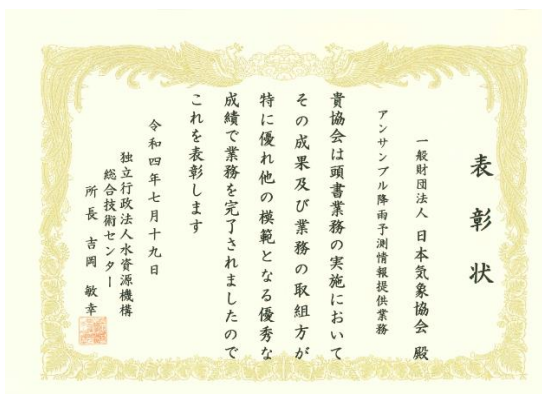 表彰状
一般財団法人 日本気象協会 殿
アンサンブル降雨予測情報提供業務
貴協会は頭書業務の実施において
その成果及び業務の取組方が
特に優れ他の模範となる優秀な
成績で業務を完了されましたので
これを表彰します
令和四年七月十九日
独立行政法人水資源機構
総合技術センター
所長 吉岡 敏幸